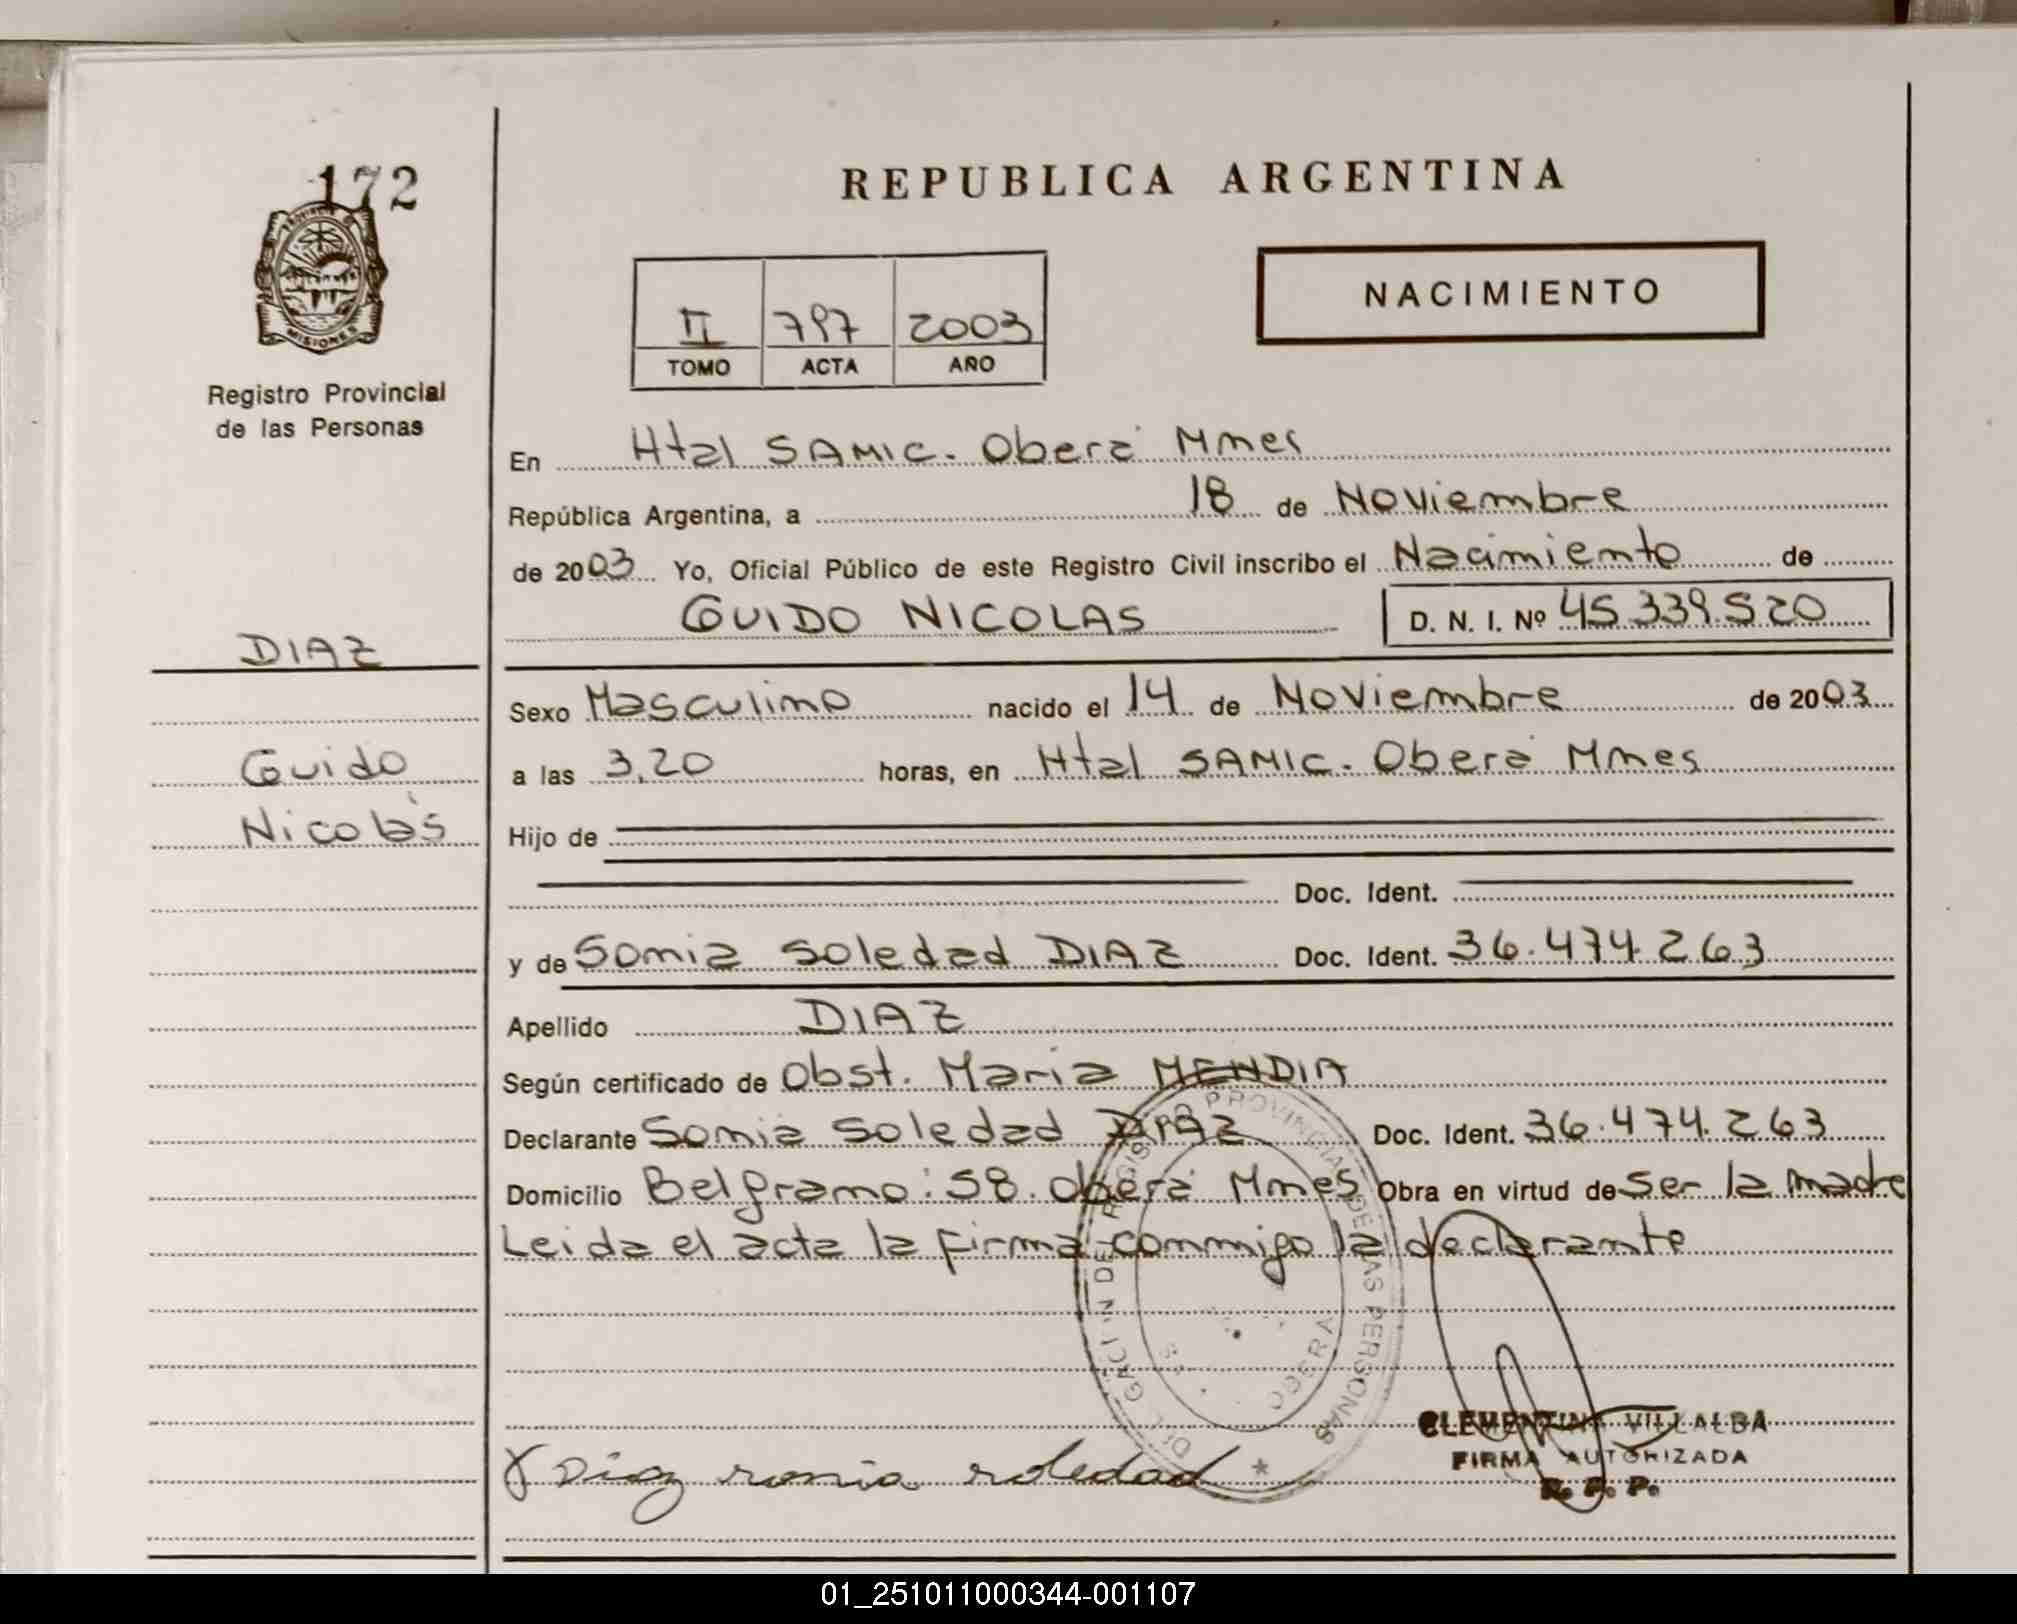 172
PROVINCIA DE
MISIONES
Registro Provincial
de las Personas
REPUBLICA ARGENTINA
NACIMIENTO
II 797 2003
TOMO ACTA AÑO
En Htal SAMIC. Oberá Mnes
República Argentina, a 18 de Noviembre
de 2003 Yo, Oficial Público de este Registro Civil inscribo el Nacimiento de
GUIDO NICOLAS D. N. I. Nº 45.339.520
DIAZ
Guido
Nicolás
Sexo Masculino nacido el 14 de Noviembre de 2003
a las 3,20 horas, en Htal SAMIC. Oberá Mnes
Hijo de
Doc. Ident.
y de Sonia Soledad DIAZ Doc. Ident. 36.474.263
Apellido DIAZ
Según certificado de Obst. Maria MENDIA
Declarante Sonia Soledad DIAZ Doc. Ident. 36.474.263
Domicilio Belgrano: 58. Oberá Mnes Obra en virtud de Ser la madre
Leida el acta la firma conmigo la declarante
REGISTRO PROVINCIAL DE LAS PERSONAS
OBERA
CLEMENTINA VILLALBA
FIRMA AUTORIZADA
R. P. P.
Diaz sonia soledad
01_251011000344-001107